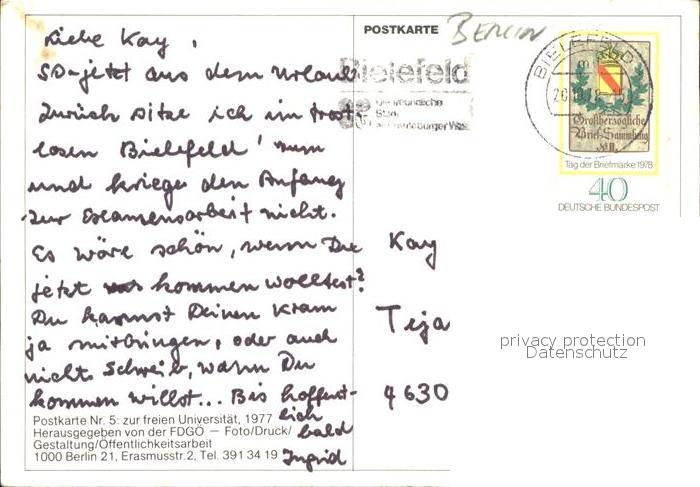 POSTKARTE
BERLIN
Liebe Kay,
so-jetzt aus dem Urlaub
zurück sitze ich im trost-
losen Bielefeld rum
und kriege den Anfang
zur Examensarbeit nicht.
Es wäre schön, wenn Du
jetzt kommen wolltest?
Du kannst Deinen Kram
ja mitbringen, oder auch
nicht. Schreib, wann Du
kommen willst... Bis hoffent-
lich
bald
Ingrid
Postkarte Nr. 5: zur freien Universität, 1977
Herausgegeben von der FDGÖ — Foto/Druck/
Gestaltung/Öffentlichkeitsarbeit
1000 Berlin 21, Erasmusstr.2, Tel. 391 34 19
Bielefeld
die freundliche
Stadt
am Teutoburger Wald
BIELEFELD
Großherzogliche
Brief-Sammlung
Tag der Briefmarke 1978
40
DEUTSCHE BUNDESPOST
Kay
Teja
4630
privacy protection
Datenschutz